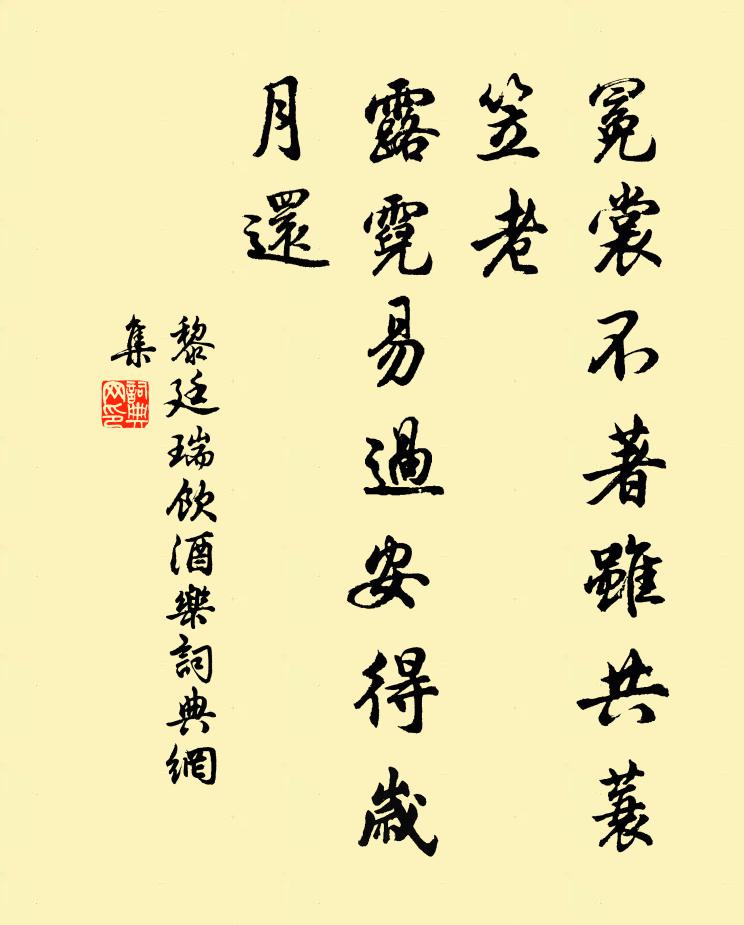 冕裳不著雖共蓑
笠老
露霓易過安得歲
月還
黎廷瑞飲酒樂詞典網
集
詞典
网印